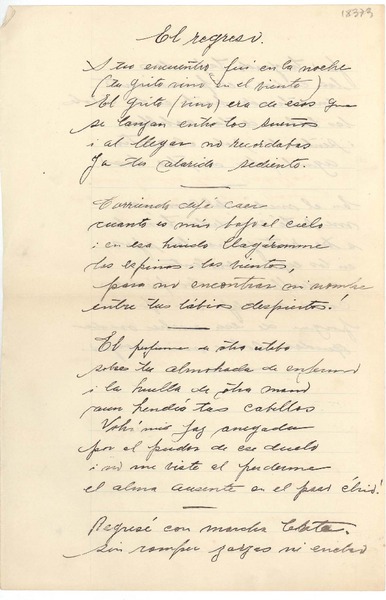 18373
El regreso.
A tu encuentro fui en la noche
(tu grito vino en el viento)
El grito (vino) era de esos que
se lanzan entre los sueños
i al llegar no recordabas
ya tu alarido sediento.
Corriendo dejé caer
cuanto es mío bajo el cielo
i en esa huida llagáronme
los espinos i los vientos,
para no encontrar mi nombre
entre tus labios despiertos!
El perfume de otro
sobre tu almohada de enfermo
i la huella de otra mano
aun hendió tus cabellos
Volví mi faz anegada
por el pudor de ese duelo
i no me viste el perderme
el alma ausente en el
Regresé con marcha lenta.
sin romper zarzas ni